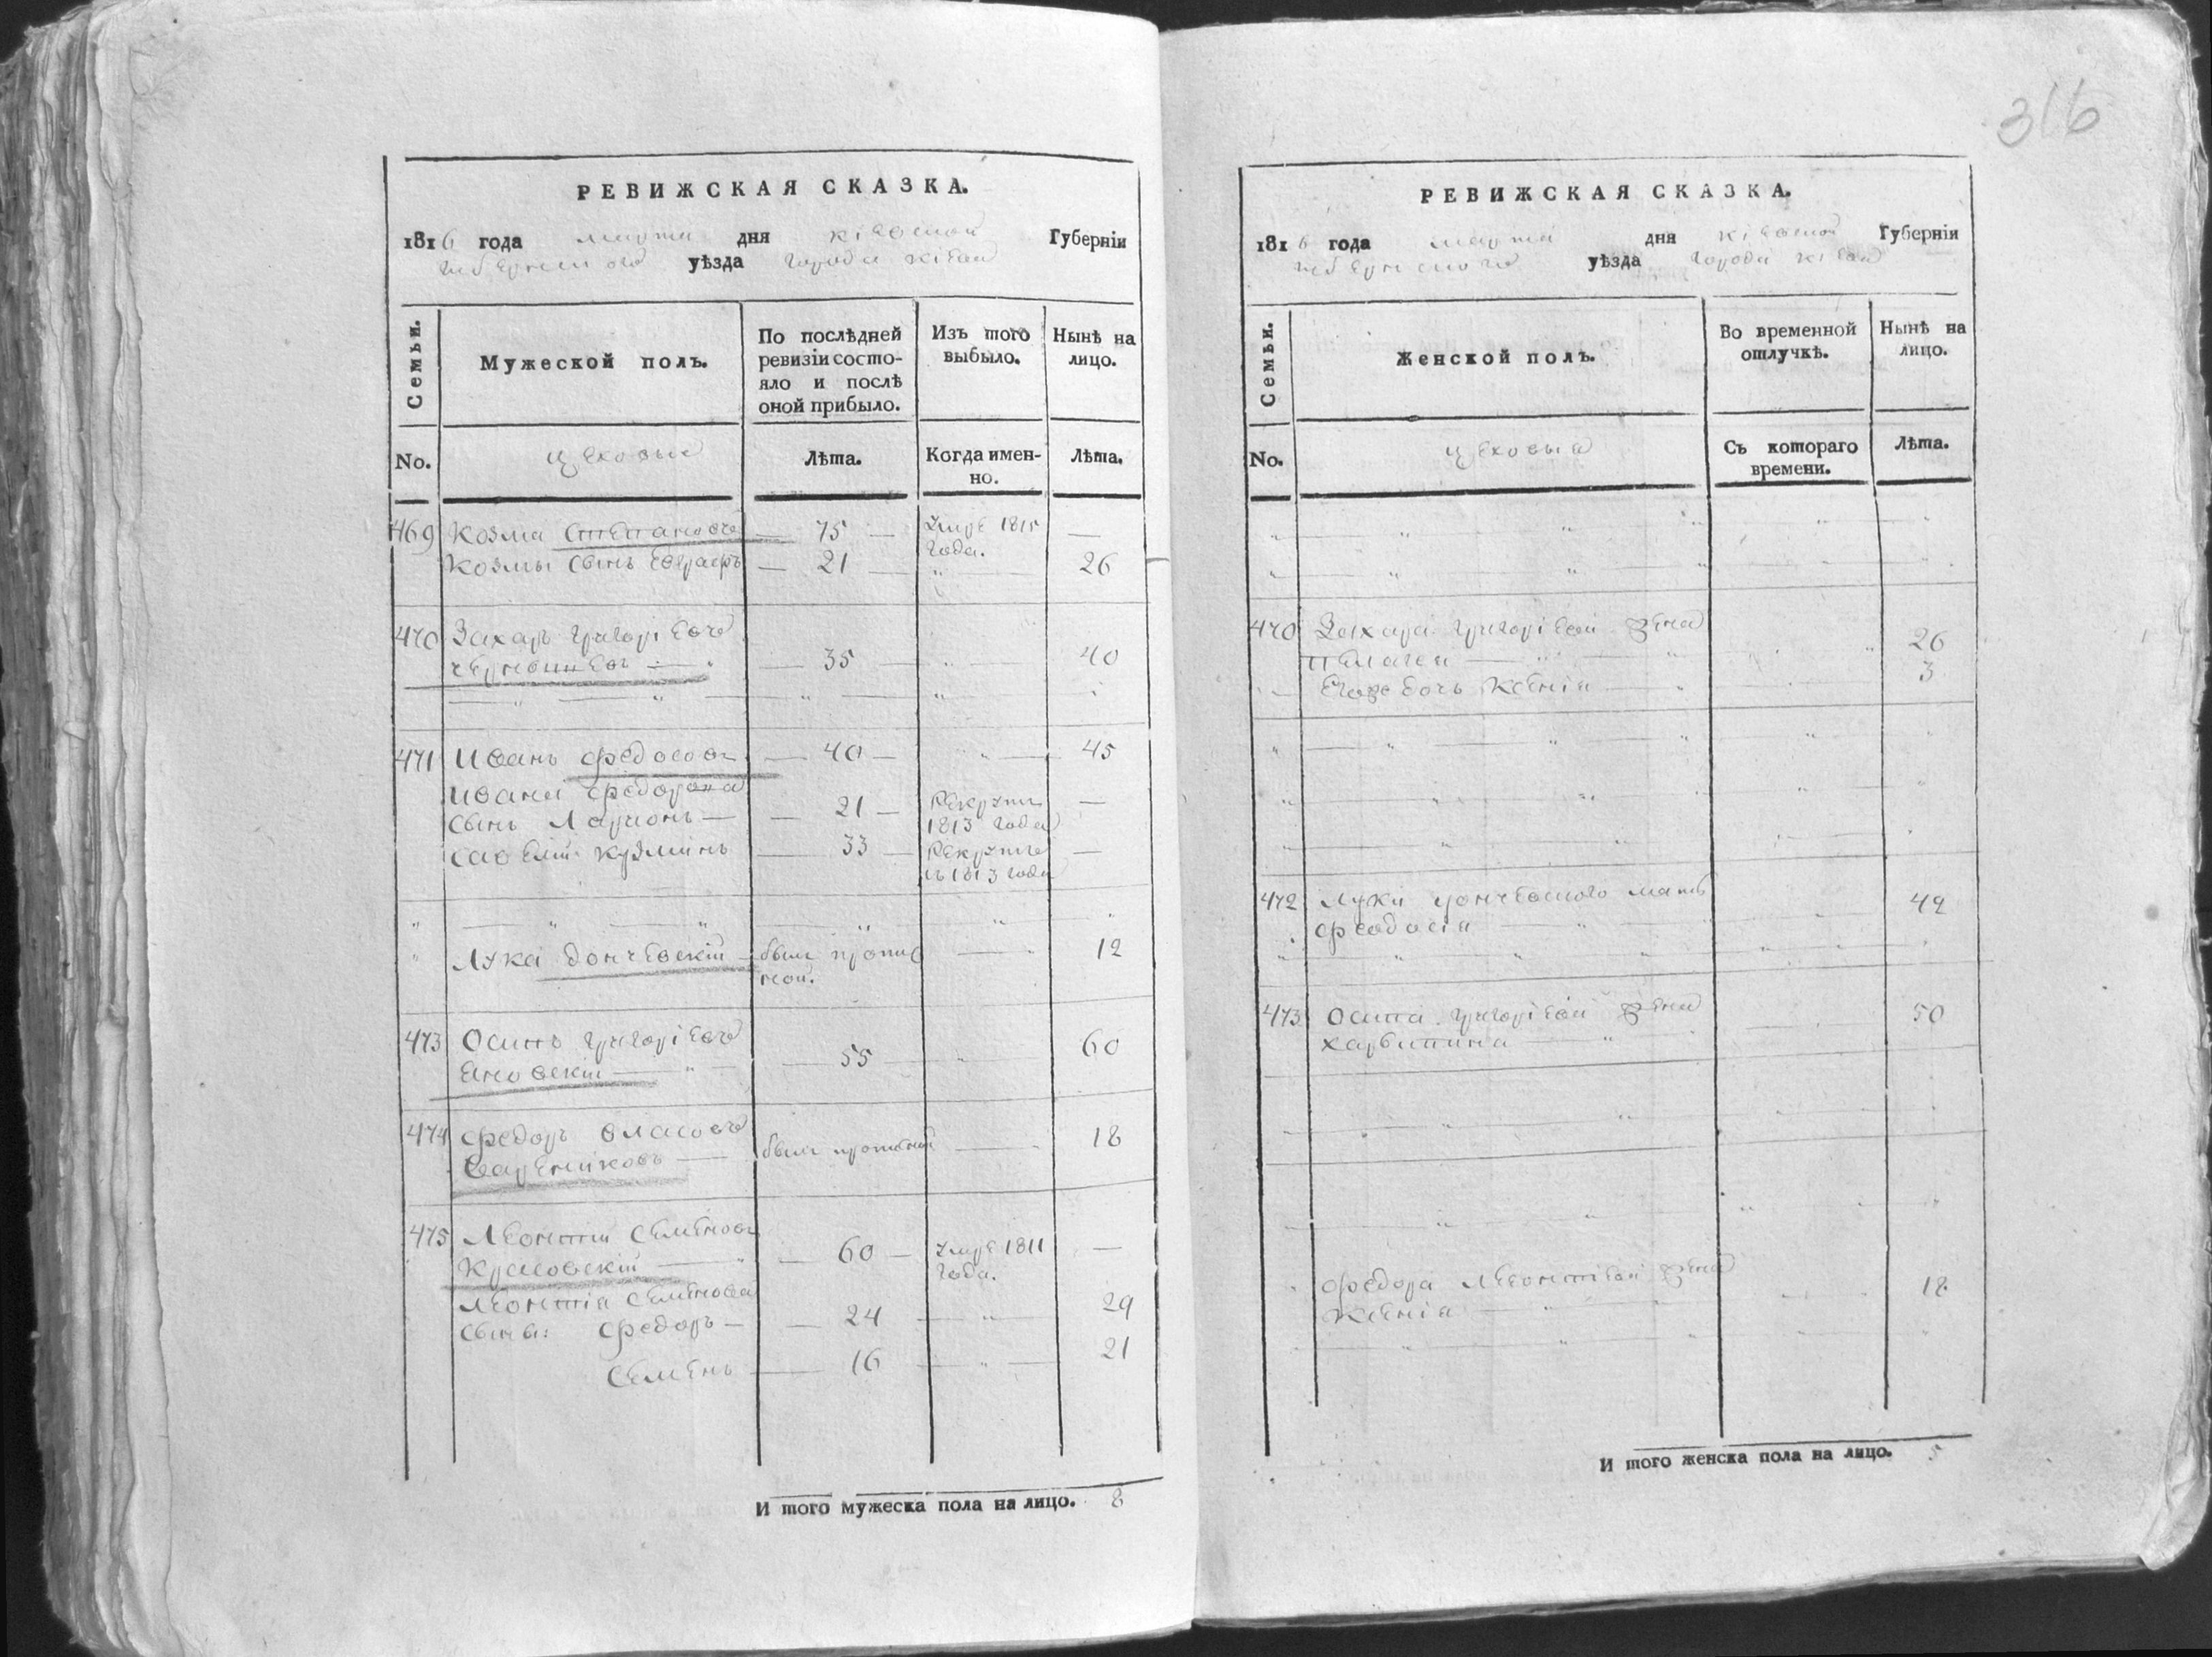 316
РЕВИЖСКАЯ СКАЗКА.
1816 года марта дня кіевской Губерніи
уѣзда города кіева
Семьи.
Мужеской полъ.
По послѣдней ревизіи состо-
яло и послѣ
оной прибыло.
Изъ того
выбыло.
Нынѣ на
лицо.
No.
цеховые
Лѣта.
Когда имен-
но.
Лѣта.
469 Козма Степановъ — 75 — умре 1815 года. —
Козмы сынъ Евграфъ — 21 — " — 26
470 Захаръ григоріевъ
— 35 — " 40
471 Иванъ федосовъ — 40 — " — 45
Ивана федорова
сынъ Ларионъ — — 21 — Рекрутъ 1813 года —
савелій кузминъ — 33 — Рекрутъ 1813 года —
" Лука дончевскій — былъ пропис
ной. — 12
473 Осипъ григоріевъ
Яновскій — " — — 55 — " 60
474 федоръ власовъ
варениковъ — былъ прописной — 18
475 Леонтій Семеновъ
— 60 — умре 1811 года. —
Леонтія семенова
сыны: федоръ — — 24 — " — 29
семенъ — 16 — " — 21
И того мужеска пола на лицо. 8
РЕВИЖСКАЯ СКАЗКА.
1816 года марта дня кіевской Губерніи
уѣзда города кіева
Семьи.
Женской полъ.
Во временной
отлучкѣ.
Нынѣ на
лицо.
No.
цеховые
Съ котораго
времени.
Лѣта.
470 Захара григоріева жена
пелагея — " — " 26
Его дочь Ксенія — " 3
472 Луки дончевского мать
феодосія — " — 42
473 Осипа григоріева жена
— " — 50
федора леонтіева жена
Ксенія — " — 18
И того женска пола на лицо. 5